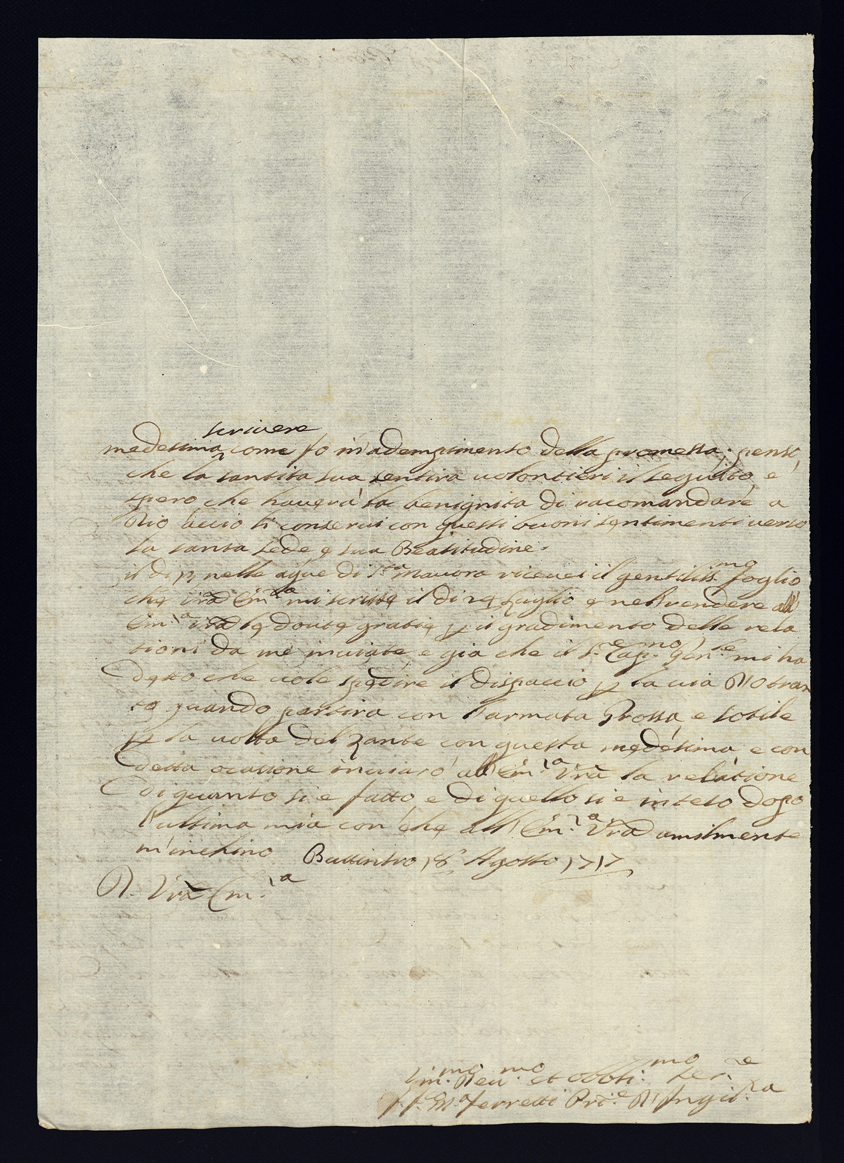 scrivere
medesima come fo in adempimento della promessa; pensi,
che la santità sua sentirà volontieri il seguito, e
spero che haverà la benignità di racomandare a
Dio acciò li conservi con questi buoni sentimenti verso
la santa sede e sua Beatitudine.
il di 17 nelle aque di S.ta Maura ricevei il gentiliss.mo foglio
che Vrã Em.za mi scrisse il di 24 luglio e nell rendere all'
Em.za Vrã le doute gratie p il gradimento delle rela
tioni da me inviate e gia che il S.e Cap.no Gen.le mi ha
detto che vole spedire il dispaccio p la via d'Otran
to quando partirà con l'armata Grossa e sotile
p la volta del Zante con questa medesima e con
detta ocasione inviarò all Em.za Vrã la relatione
di quanto si è fatto e di quello si è inteso dopo
l'ultima mia con che all Em.za Vrã umilmente
m'inchino Buttintro 18 Agosto 1717
D. Vrã Em.za
Um.mo Dev.mo et obbli.mo Ser.re
Ferretti